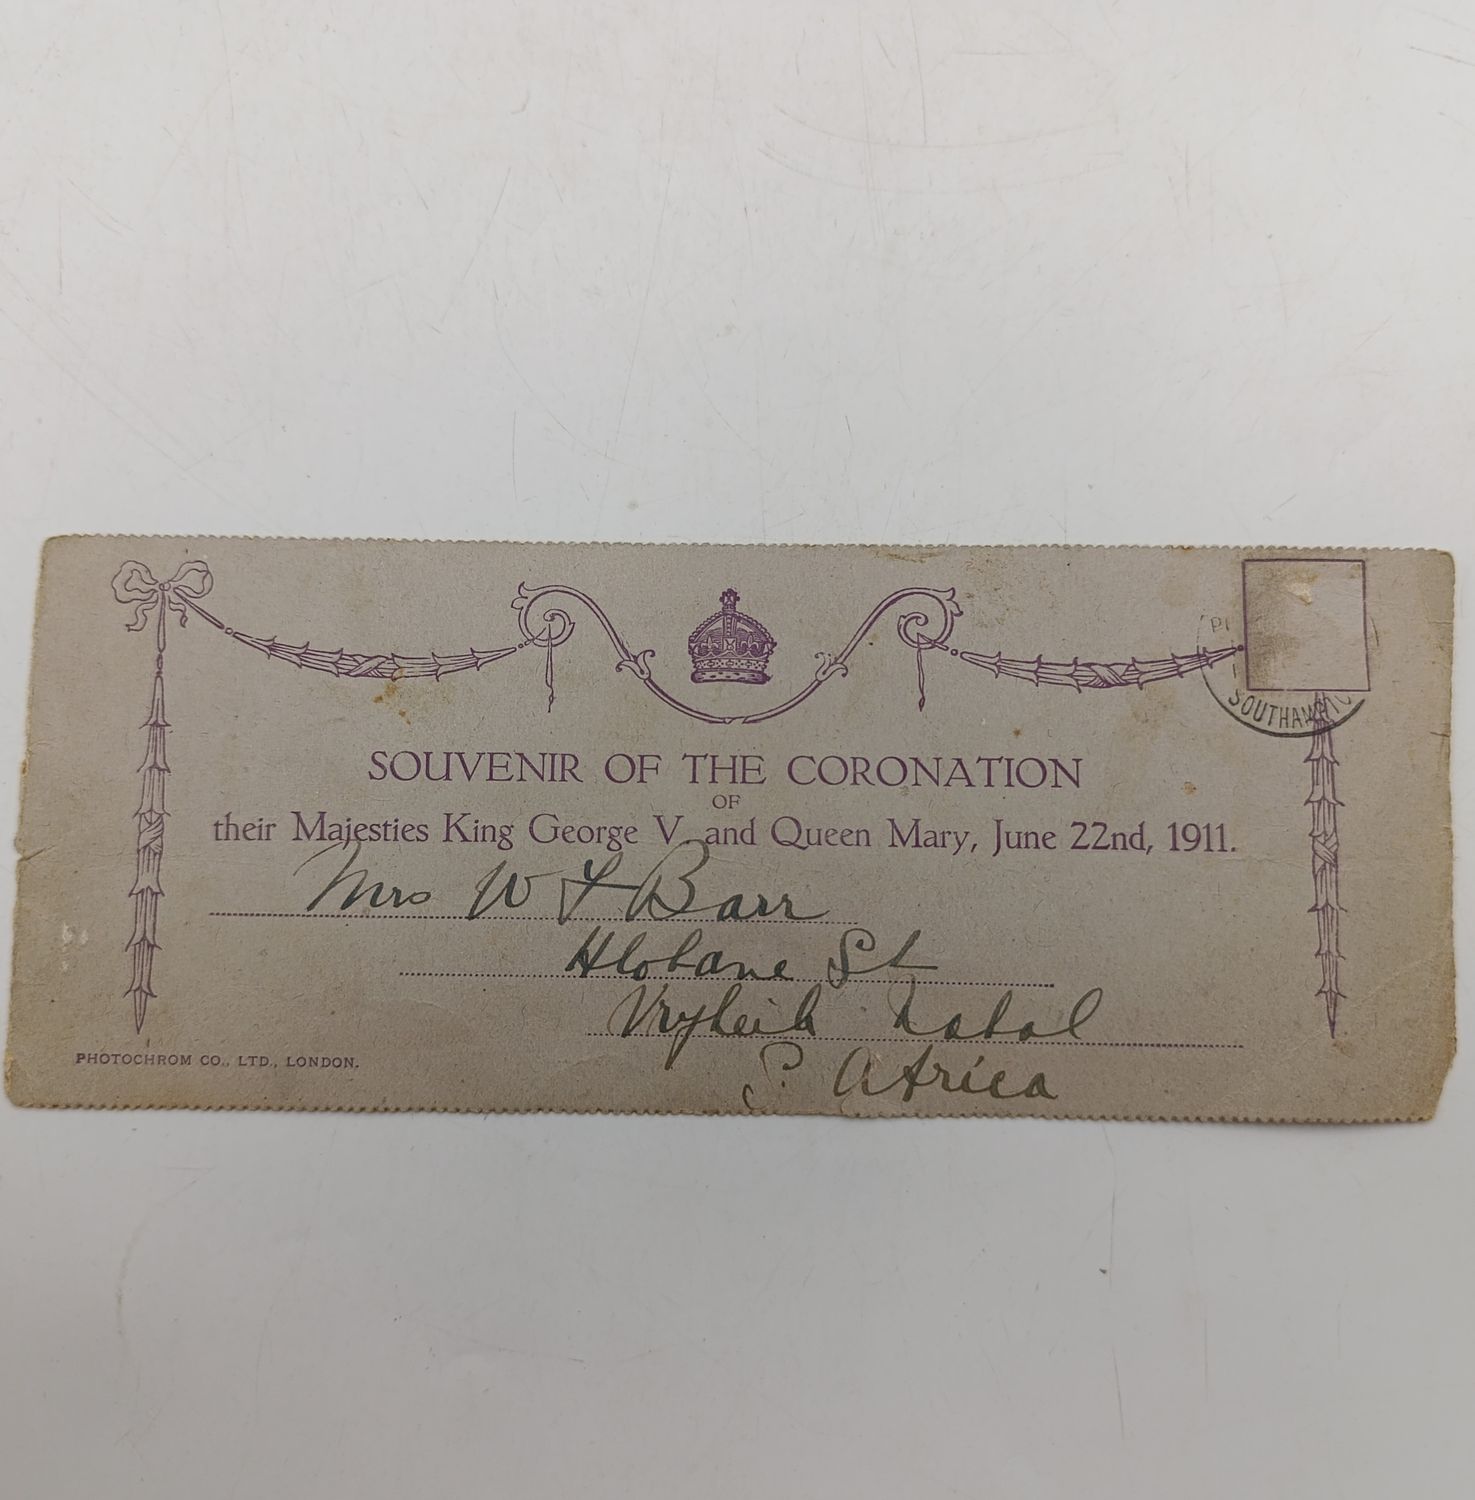 SOUTHAMPTO
SOUVENIR OF THE CORONATION
OF
their Majesties King George V. and Queen Mary, June 22nd, 1911.
Mrs W F Barr
Hlobane St
Vryheid Natal
S. Africa
PHOTOCHROM CO., LTD., LONDON.